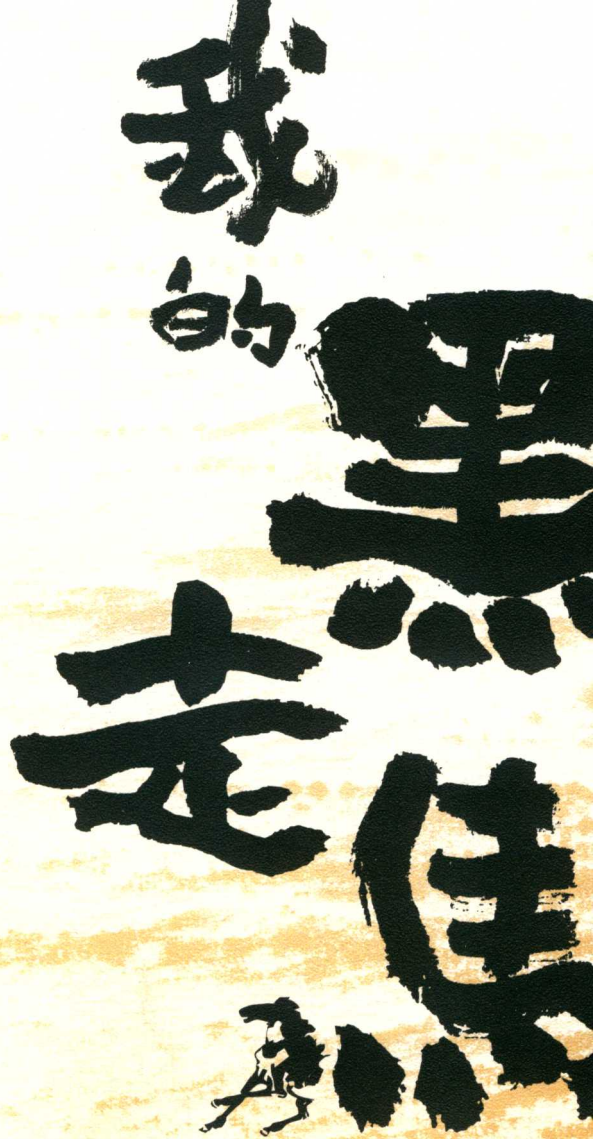 我的
黑走馬